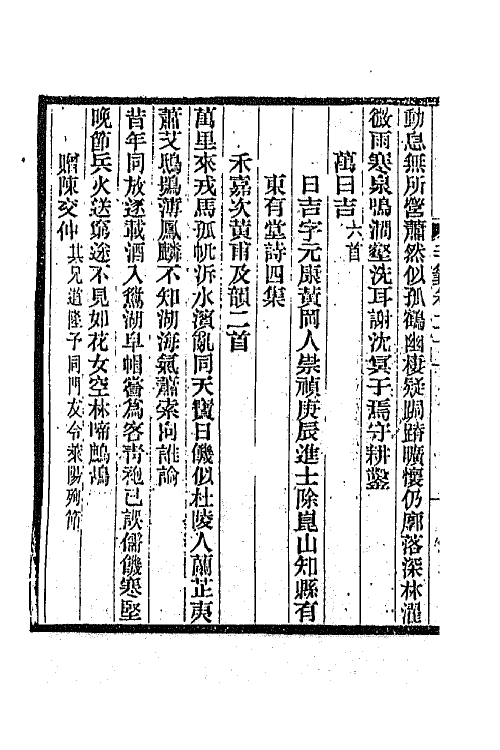 動息無所營蕭然似孤鶴幽棲疑跼蹐曠懷仍廓落深林濯
微雨寒泉鳴澗壑洗耳謝沈冥于焉守耕鑿
萬日吉六首
日吉字元康黃岡人崇禎庚辰進士除崑山知縣有
東有堂詩四集
禾嘉次黃甫及韻二首
萬里來戎馬孤帆泝水濱亂同天寶日饑似杜陵人蘭芷夷
蕭艾鴟鸮溥鳳麟不知湖海氣蕭索向誰論
昔年同放逐載酒入鴛湖皁帽嘗為客靑袍已誤儒饑寒堅
晚節兵火送窮途不見如花女空林啼鷓鴣
贈陳交仲其兄道陸子同門友令萊陽殉節